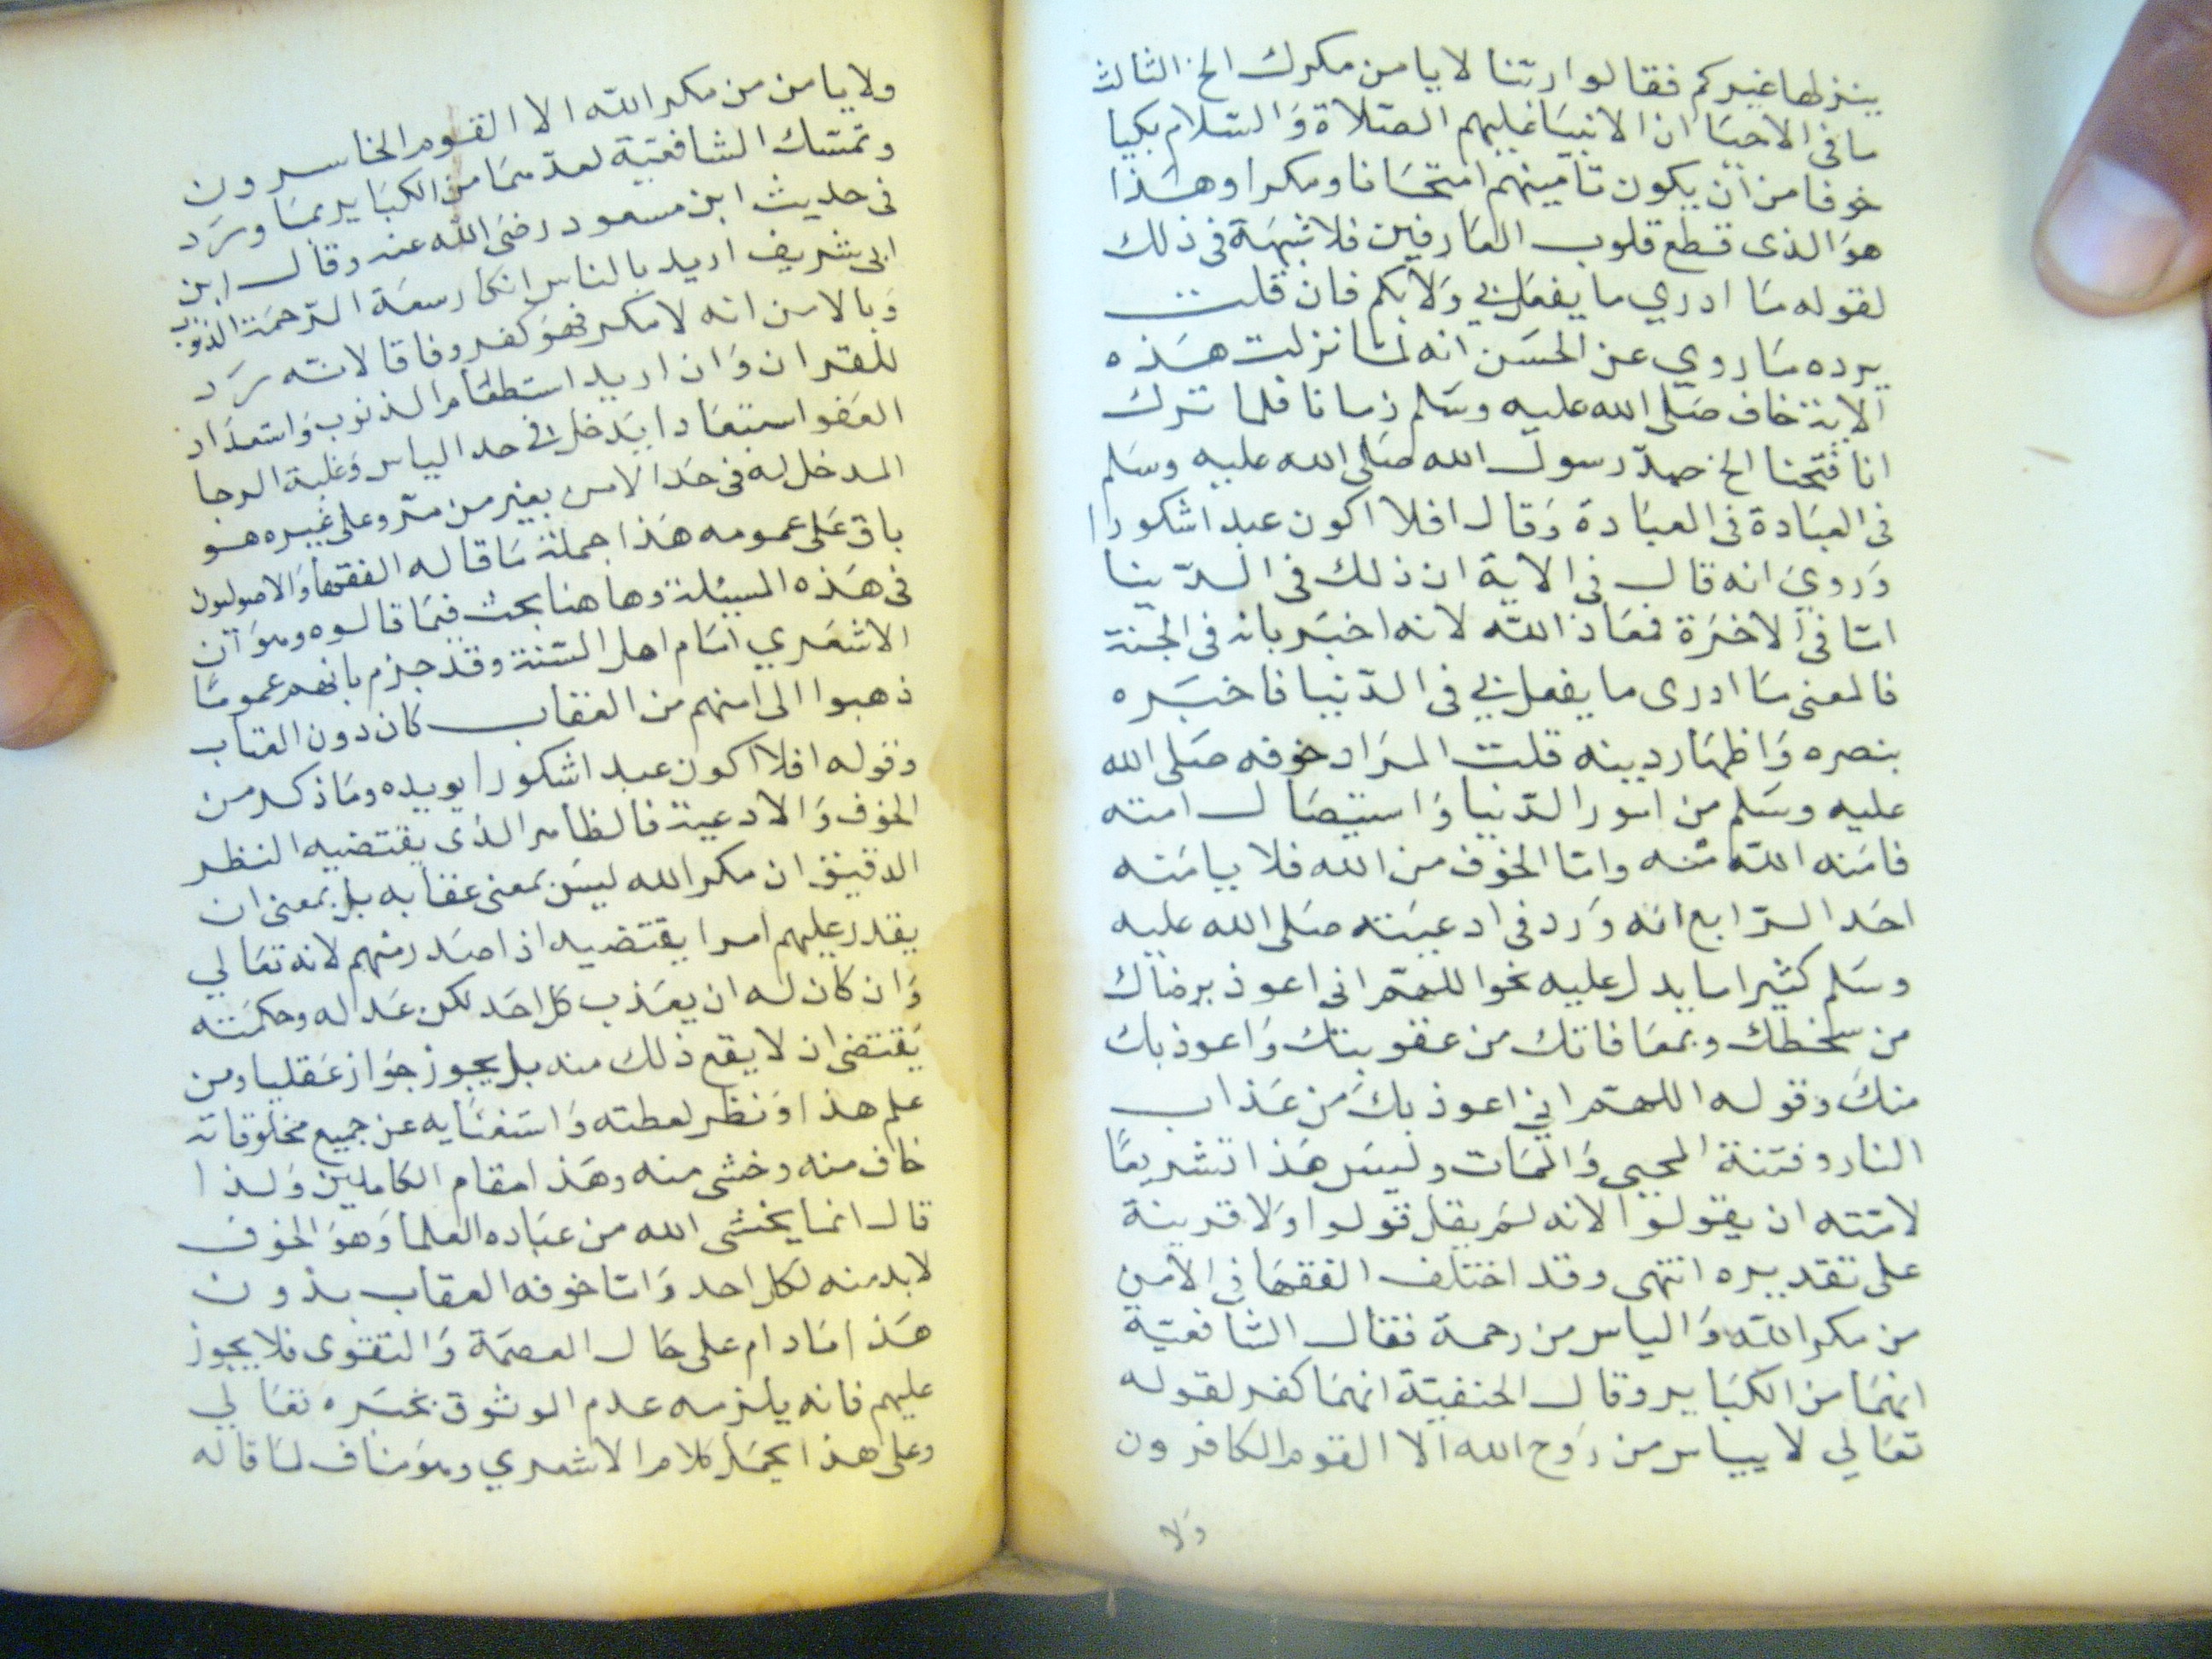 ينزلها غيركم فقالوا ربنا لا يامن مكرك الخ الثالث
ما في الاحيا ان الانبيا عليهم الصلاة والسلام بكيا
خوفا من ان يكون تامينهم امتحانا ومكرا وهذا
هو الذى قطع قلوب العارفين فلا شبهة فى ذلك
لقوله ما ادري ما يفعل بي ولا بكم فان قلت
يرده ما روي عن الحسن انه لما نزلت هذه
الاية خاف صلى الله عليه وسلم زمانا فلما ترك
انا فتحنا الخ جهد رسول الله صلى الله عليه وسلم
فى العبادة فى العبادة وقال افلا اكون عبدا شكورا
وروي انه قال فى الاية ان ذلك فى الدينا
اما فى الاخرة فمعاذ الله لانه اخبر بانه فى الجنة
فالمعنى ما ادرى ما يفعل بي فى الدنيا فاخبره
بنصره واظهار دينه قلت المراد خوفه صلى الله
عليه وسلم من امور الدنيا واستيصال امته
فامنه الله منه واما الخوف من الله فلا يامنه
احد الرابع انه ورد فى ادعيته صلى الله عليه
وسلم كثيرا ما يدل عليه نحو اللهم انى اعوذ برضاك
من سخطك وبمعافاتك من عقوبتك واعوذ بك
منك وقوله اللهم اني اعوذ بك من عذاب
النار وفتنة المحيى والممات وليس هذا تشريعا
لامته ان يقولوا لانه لم يقل قولوا ولا قرينة
على تقديره انتهى وقد اختلف الفقها في الامن
من مكر الله والياس من رحمة فقال الشافعية
انهما من الكباير وقال الحنفية انهما كفر لقوله
تعالي لا يياس من روح الله الا القوم الكافرون
ولا
ولا يامن من مكر الله الا القوم الخاسرون
وتمسك الشافعية لعدهما من الكباير بما ورد
فى حديث ابن مسعود رضى الله عنه وقال ابن
ابى شريف اريد بالناس انكار سعة الرحمة الذنوب
وبالامن انه لا مكر فهو كفر وفاقا لانه رد
للقران وان اريد استعظام الذنوب واستعداد
العفو استبعادا يدخل فى حد الياس وغلبة الرجا
المدخل له فى حد الامن بغير من مر وعلى غيره هو
باق على عمومه هذا جملة ما قاله الفقها والاصوليون
فى هذه المسيلة وها هنا بحث فيما قالوه وهو ان
الاشعري امام اهل السنة وقد جزم بانهم عموما
ذهبوا الى امنهم من العقاب كان دون العتاب
وقوله افلا اكون عبدا شكورا يويده وما ذكر من
الخوف والادعية فالظاهر الذى يقتضيه النظر
الدقيق ان مكر الله ليس بمعنى عقابه بل بمعنى ان
يقدر عليهم امرا يقتضيه اذا صدر منهم لانه تعالي
وان كان له ان يعذب كل احد لكن عدله وحكمته
يقتضى ان لا يقع ذلك منه بل يجوز جواز عقليا ومن
علم هذا ونظر لعظمته واستغنايه عن جميع مخلوقاته
خاف منه وخشى منه وهذا مقام الكاملين ولذا
قال انما يخشى الله من عباده العلما وهو الخوف
لا بد منه لكل احد واما خوفه العقاب بدون
هذا ما دام على حال العصمة والتقوى فلا يجوز
عليهم فانه يلزمه عدم الوثوق بخبره تعالي
وعلى هذا يحمل كلام الاشعري وهو مناف لما قاله